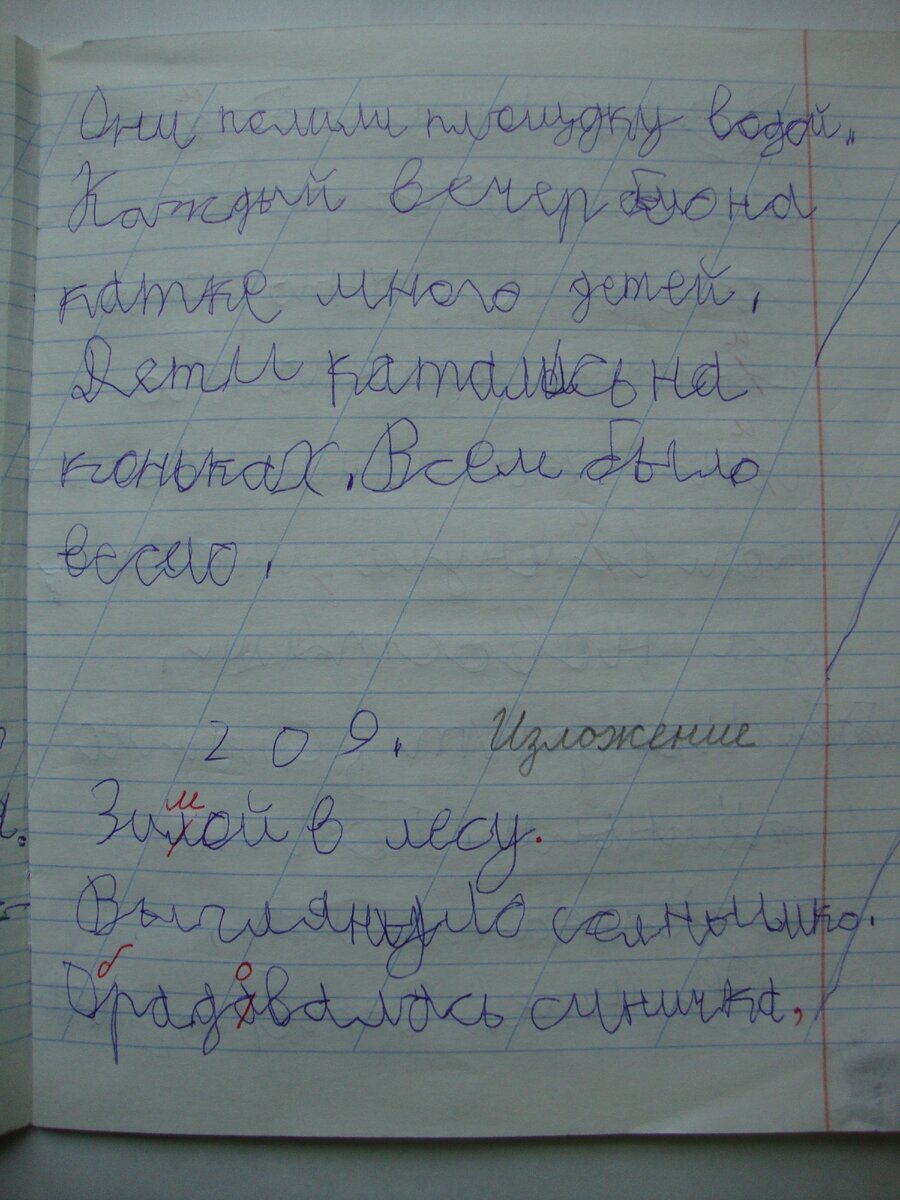 Они полили площудку водой.
Каждый вечер было на
катке много детей.
Дети катались на
коньках. Всем было
весло.
209. Изложение
Зимой в лесу.
Выглянуло солнышко.
Обрадовалась синичка,